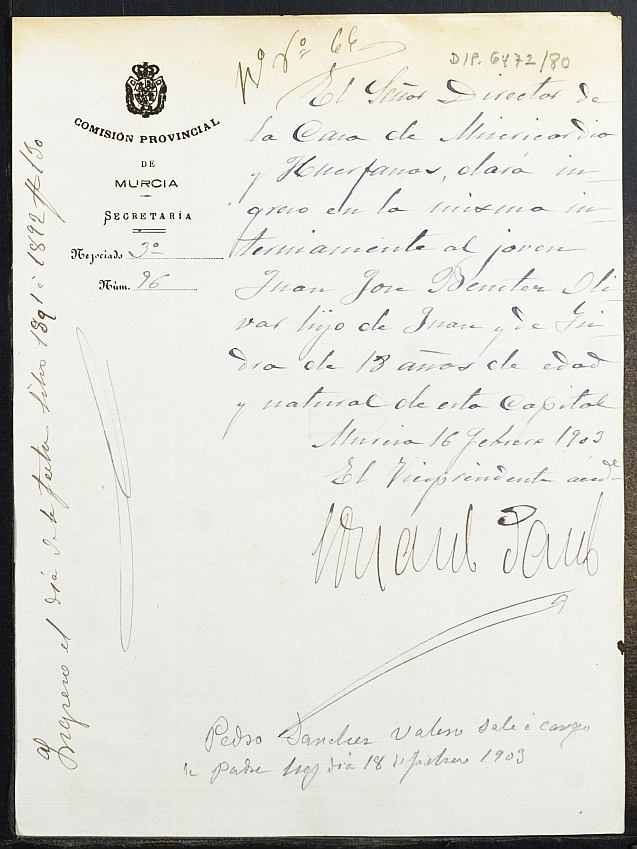 Nº Rº 66
DIP. 6472/80
COMISIÓN PROVINCIAL
DE
MURCIA
SECRETARÍA
Negociado 3º
Núm. 96
El Señor Director de
la Casa de Misericordia
y Huerfanos, dará in-
greso en la misma in-
terinamente al joven
Juan Jose Benitez Oli-
var hijo de Juan y de Isi-
dra de 18 años de edad
y natural de esta Capital
Murcia 16 febrero 1903
El Vicepresidente accdl
Ingreso el dia de la fecha libro 1891 á 1892 fº 180
Pedro Sanchez Valero sale á cargo
de padre hoy dia 18 de febrero 1903